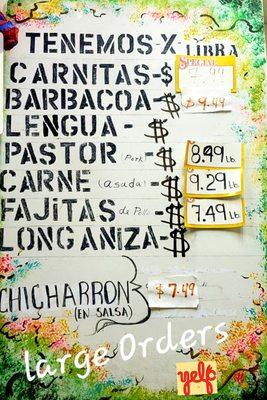 TENEMOS-X LIBRA
SPECIAL
CARNITAS-$ 7.99
BARBACOA-$ $9.49
LENGUA-$
PASTOR (Pork) $ 8.49 Lb.
CARNE (asada)-$ 9.29 Lb.
FAJITAS de Pollo $ 7.49 Lb.
LONGANIZA-$
CHICHARRON $7.49
(EN SALSA)
large Orders
yelp